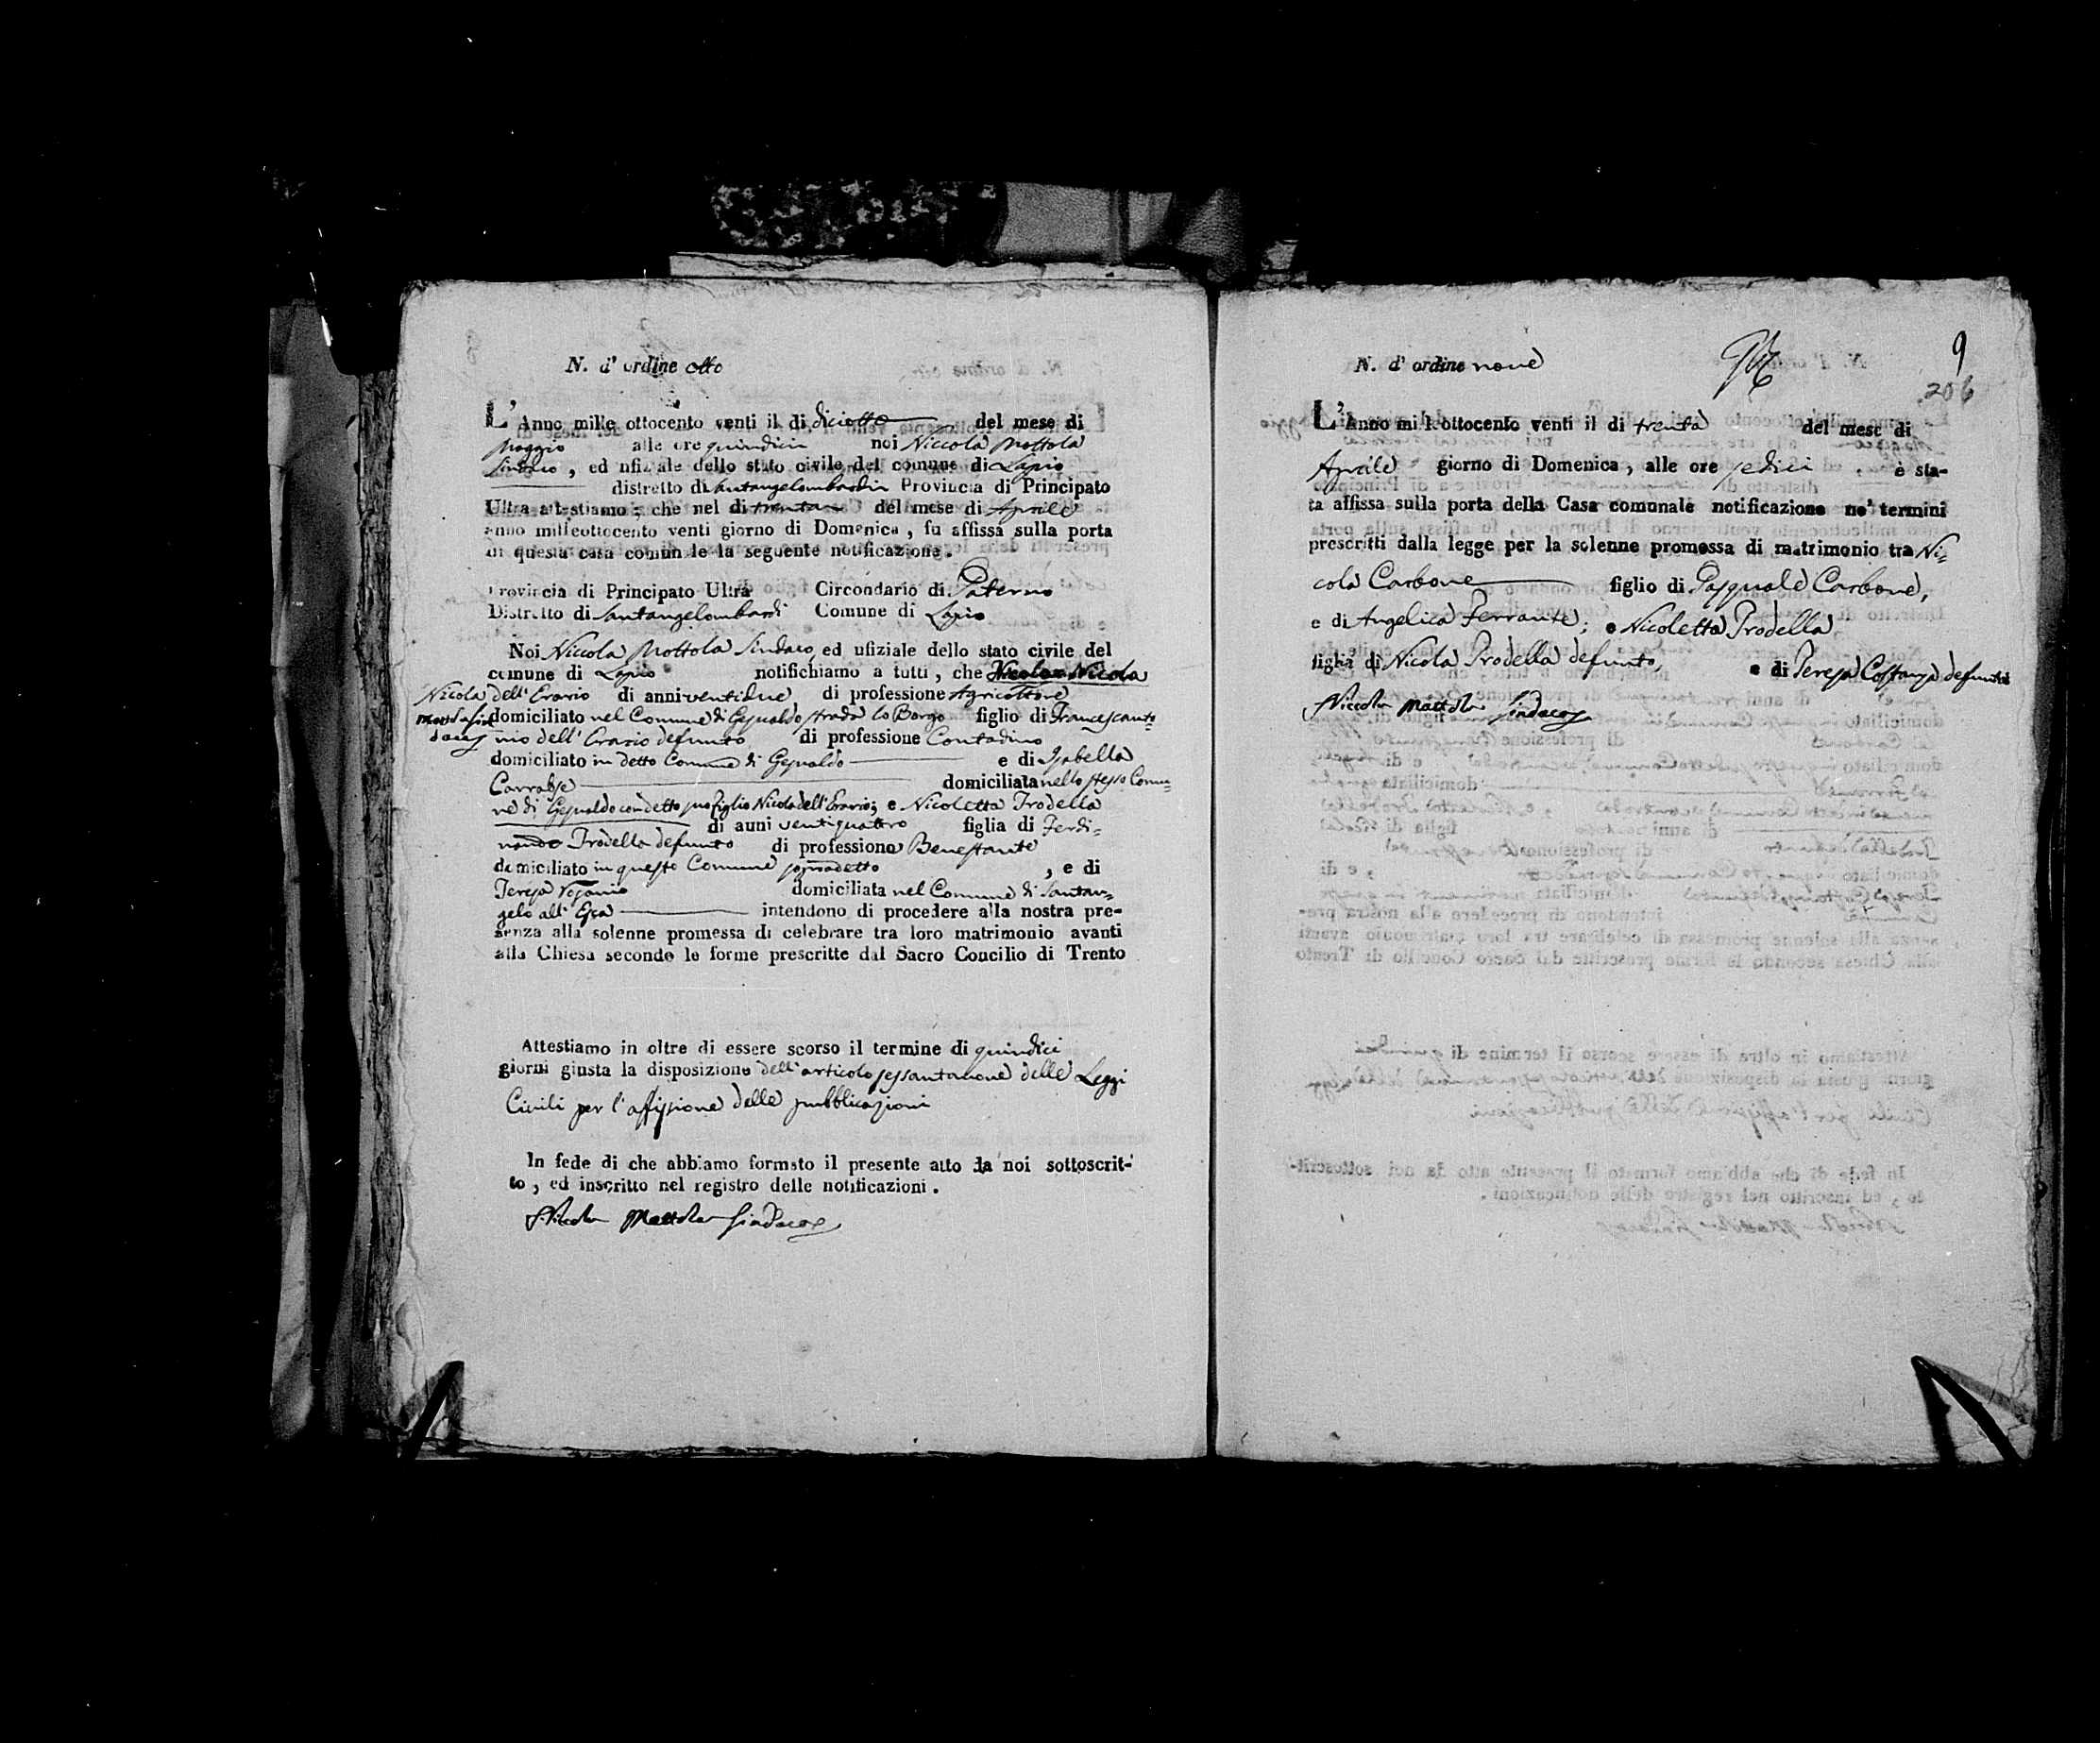 N. d' ordine otto
L'Anno mille ottocento venti il di diciotto del mese di
Maggio alle ore quindici noi Niccola Mottola
Sindaco, ed ufiziale dello stato civile del comune di Lapio
distretto di Santangelombardi Provincia di Principato
Ultra attestiamo; che nel di trenta del mese di Aprile
anno milleottocento venti giorno di Domenica, fu affissa sulla porta
di questa casa comunale la seguente notificazione.
Provincia di Principato Ultra Circondario di Paterno
Distretto di Santangelombardi Comune di Lapio
Noi Niccola Mottola Sindaco, ed ufiziale dello stato civile del
comune di Lapio notifichiamo a tutti, che Nicola
Nicola dell' Erario di anni ventidue di professione Agricoltore
domiciliato nel Comune di Gesualdo strada lo Borgo figlio di Francescanto=
nio dell' Erario defunto di professione Contadino
domiciliato in detto Comune di Gesualdo e di Isabella
domiciliata nello stesso Comu=
ne di Gesualdo con detto suo figlio Nicola dell' Erario; e Nicoletta Trodella
di anni ventiquattro figlia di Ferdi=
nando Trodella defunto di professione Benestante
domiciliato in questo Comune sopradetto, e di
Teresa domiciliata nel Comune di Santan=
gelo all' Esca intendono di procedere alla nostra pre-
senza alla solenne promessa di celebrare tra loro matrimonio avanti
alla Chiesa secondo le forme prescritte dal Sacro Concilio di Trento
Attestiamo in oltre di essere scorso il termine di quindici
giorni giusta la disposizione dell' articolo sessantanove delle Leggi
Civili per l' affissione delle pubblicazioni
In fede di che abbiamo formato il presente atto da noi sottoscrit-
to, ed inscritto nel registro delle notificazioni.
Niccola Mottola Sindaco
9
206
N. d' ordine nove
L'Anno mille ottocento venti il di trenta del mese di
Aprile giorno di Domenica, alle ore sedici, è sta-
ta affissa sulla porta della Casa comunale notificazione ne' termini
prescritti dalla legge per la solenne promessa di matrimonio tra Ni=
cola Carbone figlio di Pasquale Carbone,
e di Angelica Ferrante; e Nicoletta Trodella
figlia di Nicola Trodella defunto, e di Teresa Costanza defunta
Niccola Mottola Sindaco